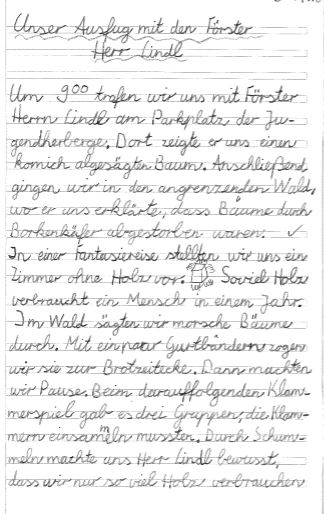 Unser Ausflug mit den Förster
Herr Lindl
Um 9⁰⁰ trafen wir uns mit Förster
Herrn Lindl am Parkplatz der Ju-
gendherberge. Dort zeigte er uns einen
komich abgesägten Baum. Anschließend
gingen wir in den angrenzenden Wald,
wo er uns erklärte, dass Bäume durch
Borkenkäfer abgestorben waren. ✓
In einer Fantasiereise stellten wir uns ein
Zimmer ohne Holz vor. Soviel Holz
verbraucht ein Mensch in einem Jahr.
Im Wald sägten wir morsche Bäume
durch. Mit ein paar Gurtbändern zogen
wir sie zur Brotzeitecke. Dann machten
wir Pause. Beim darauffolgenden Klam-
merspiel gab es drei Gruppen, die Klam-
mern einsammeln mussten. Durch Schum-
meln machte uns Herr Lindl bewusst,
dass wir nur so viel Holz verbrauchen